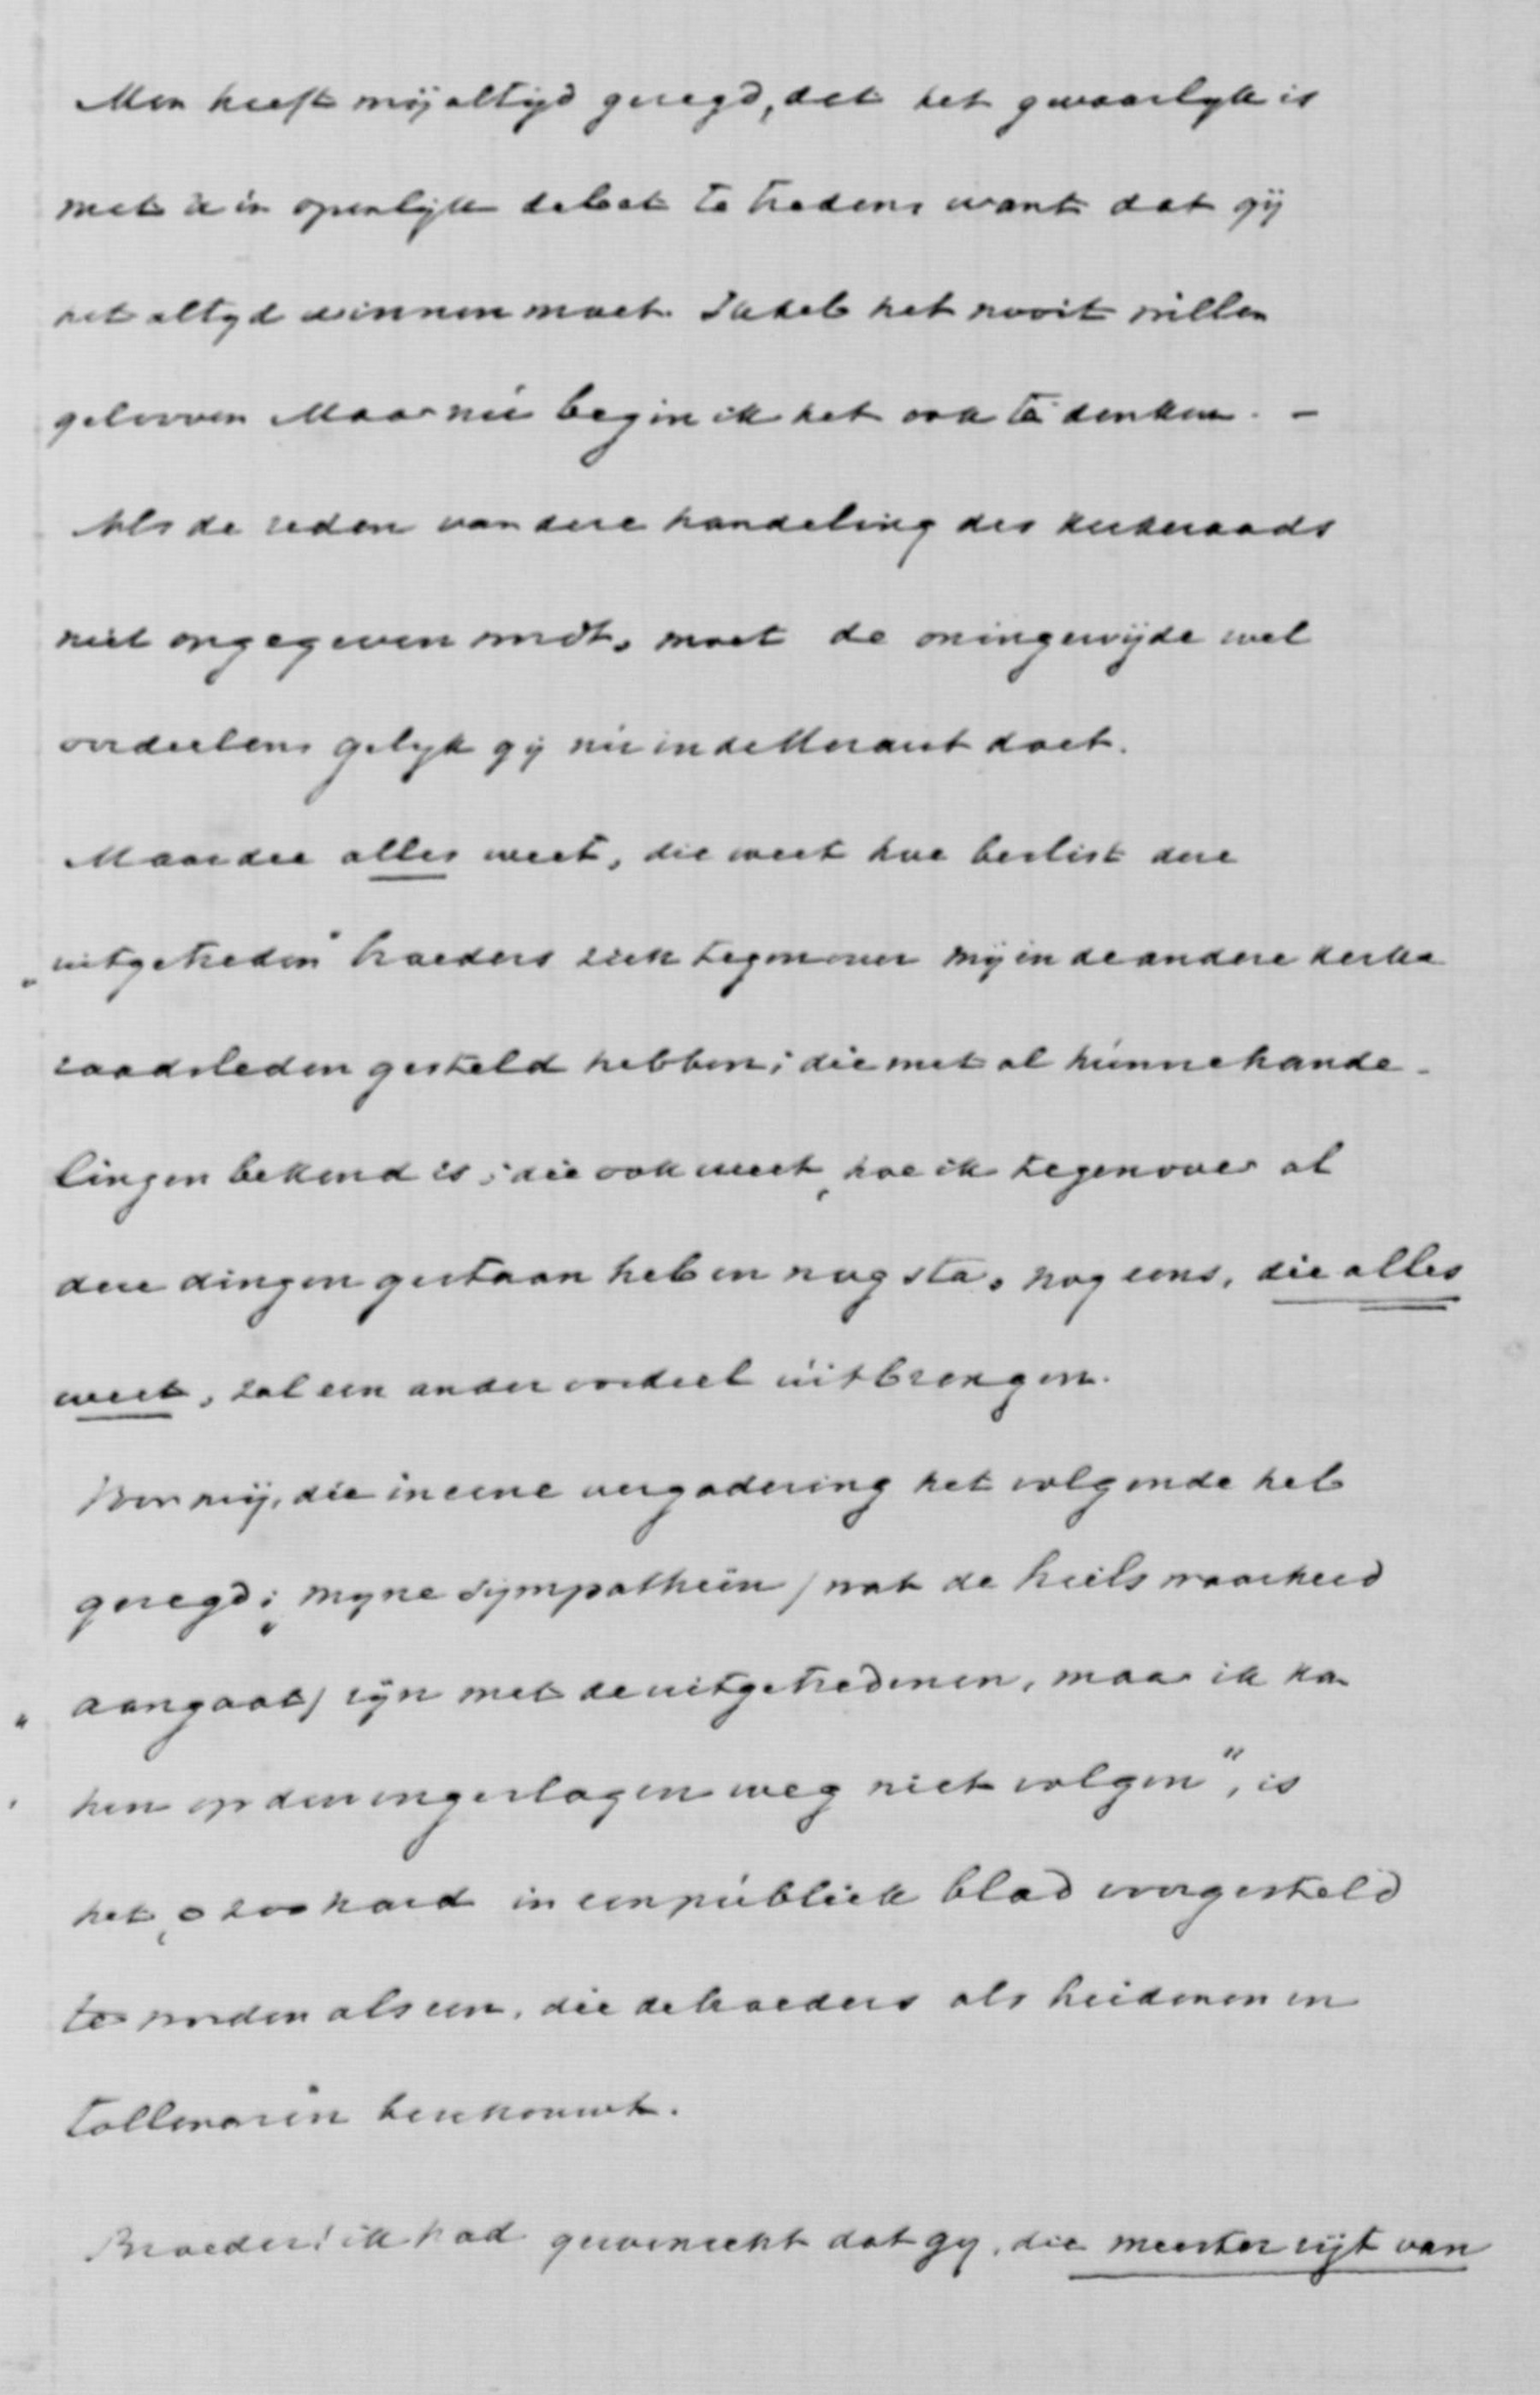 Men heeft mij altijd gezegd, dat het gevaarlyk is
met u in openlijk debat te treden, want dat gij
het altyd winnen moet. Ik heb het nooit willen
gelooven Maar nu begin ik het ook te denken. –
Als de reden van deze handeling des kerkeraads
niet opgegeven wordt, moet de oningewijde wel
oordeelen, gelyk gij nu in de Heraut doet.
Maar die alles weet, die weet hoe beslist deze
„uitgetreden" broeders zich tegenover mij en de andere kerke
raadsleden gesteld hebben; die met al hunne hande-
lingen bekend is; die ook weet, hoe ik tegenover al
deze dingen gestaan heb en nog sta, nog eens, die alles
weet, zal een ander oordeel uitbrengen.
Voor mij, die in eene vergadering het volgende heb
gezegd: „myne sympathieën (wat de heilswaarheid
„ aangaat) zijn met de uitgetredenen, maar ik kan
„ hen op den ingeslagen weg niet volgen", is
het, o zoo hard in een publiek blad voorgesteld
te worden als een, die de broeders als heidenen en
tollenaren beschouwt.
Broeder! ik had gewenscht dat gy, die meester zijt van